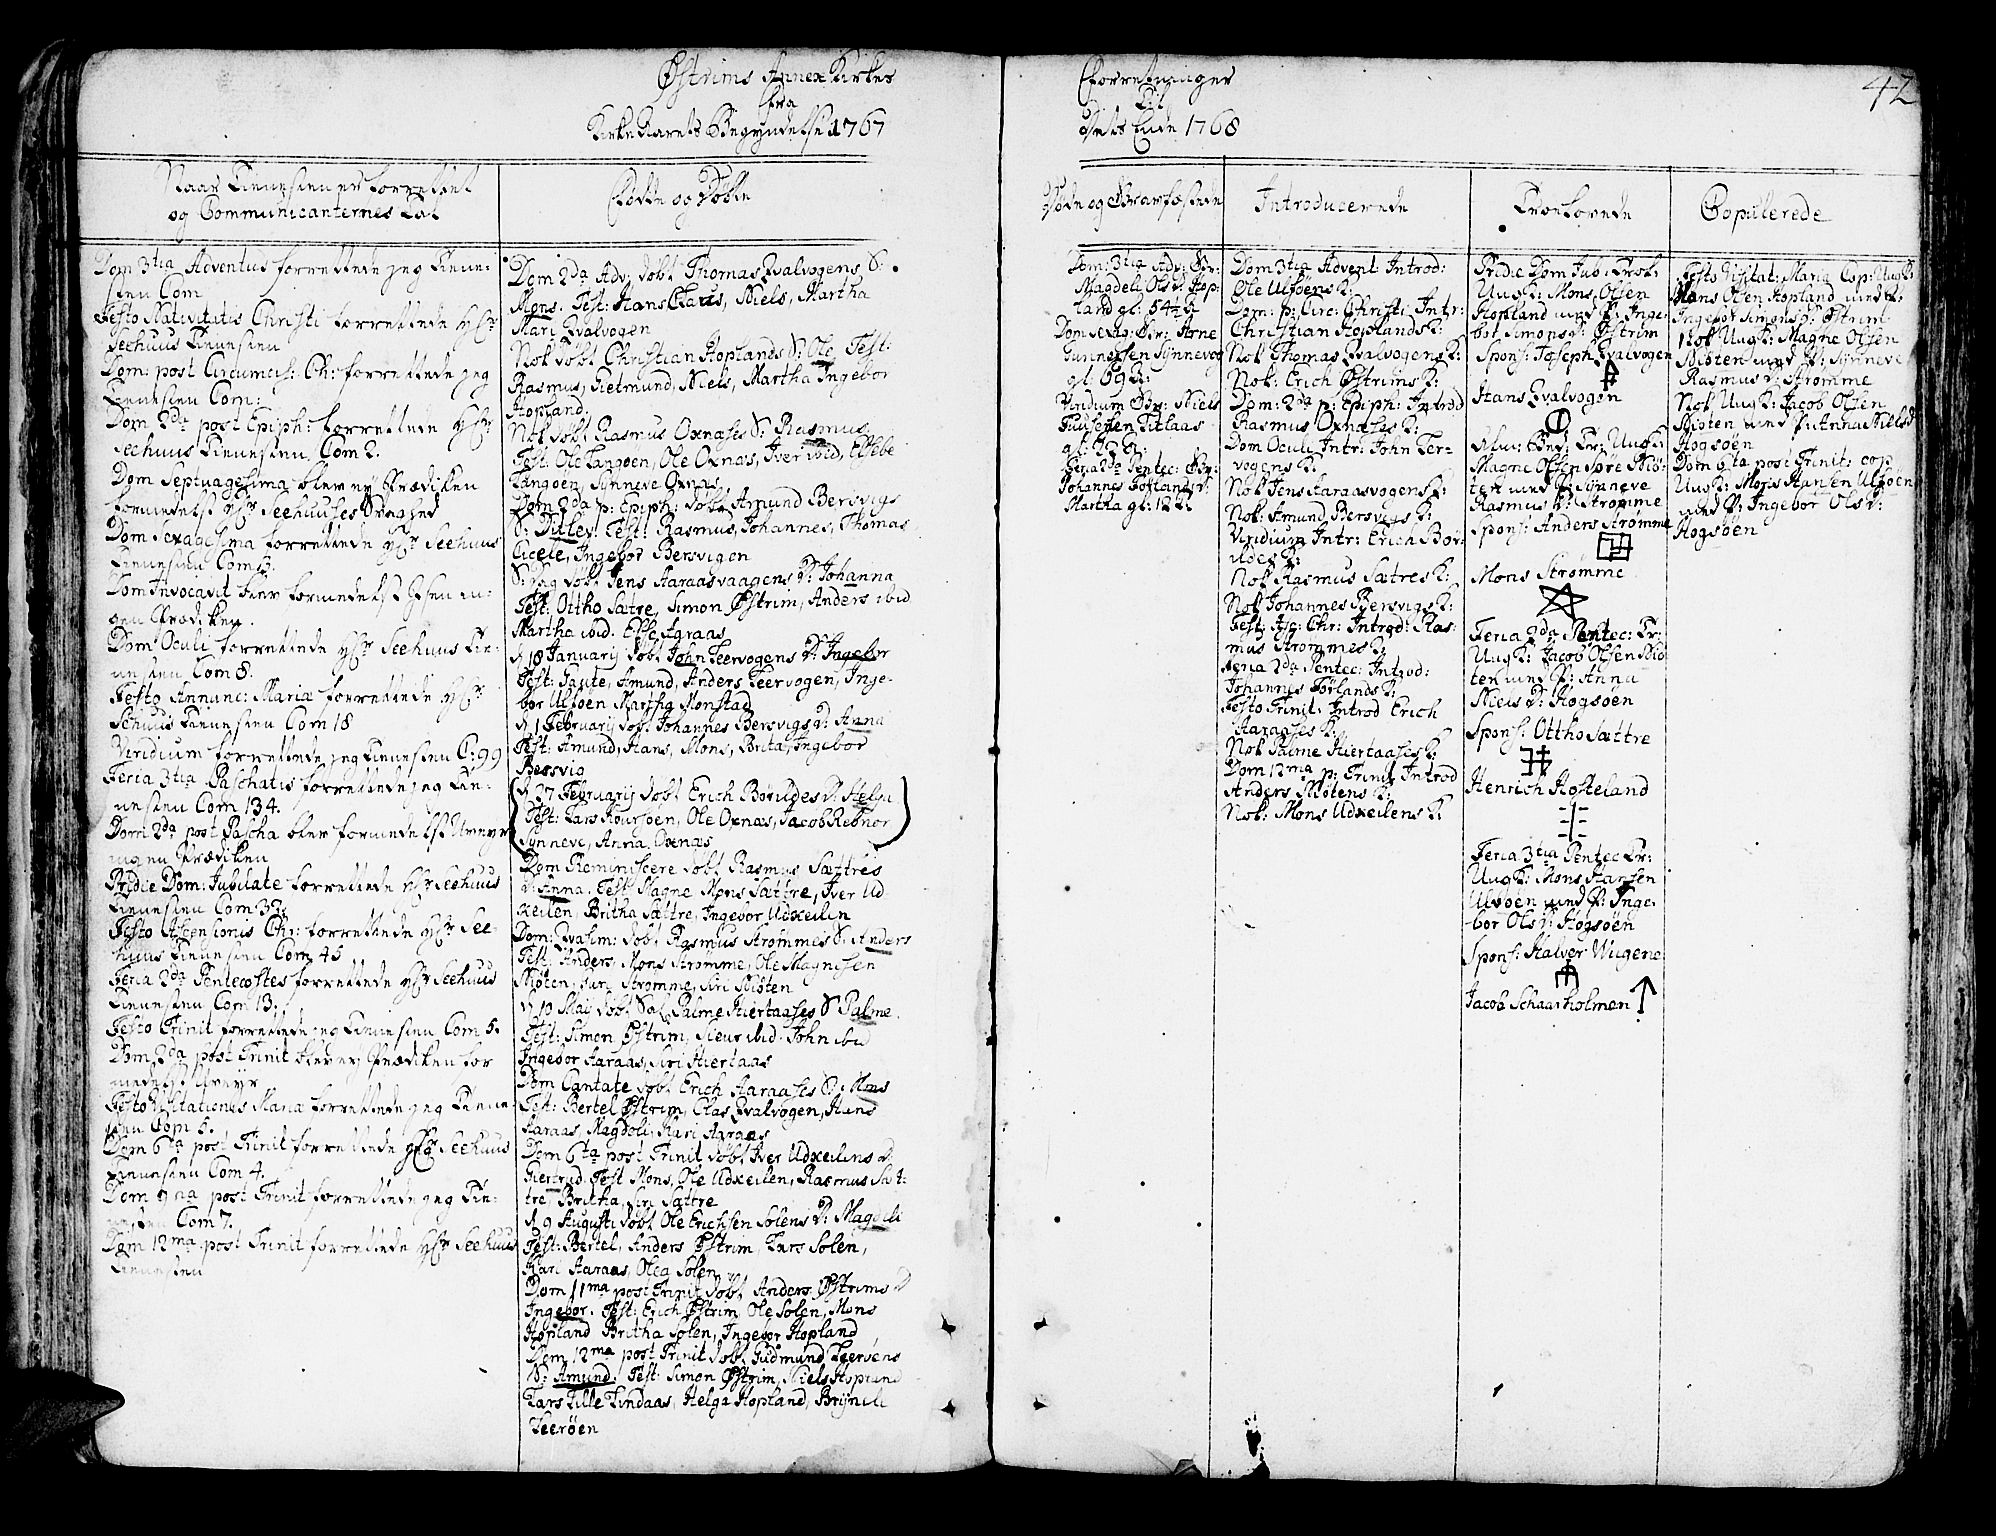 Østrims Annex Kirkes
fra
Kirke Aarets Begyndelse 1767
Naar Tienesten er forrettet
og Communicanternes Tal
Fødde og Døbte
Dom 3tia Adventus forrettede jeg Tiene-
sten Com
Festo Nativitatis Christi forrettede Hr
Seehuus Tienesten
Dom: post Circumcis: Ch: forrettede jeg
Tienesten Com:
Dom 2da post Epiph: forrettede Hr
Seehuus Tienesten Com 2.
Dom Septuagesima blev ej Prædiken
formedelst Hr Seehuuses Svaghed
Dom Sexagesima forrettede Hr Seehuus
Tienesten Com 3.
Dom Invocavit blev formedelst Iisen in-
gen Prædiken.
Dom Oculi forrettede Hr Seehuus Tie-
nesten Com 8.
Festo Annunc: Mariæ forrettede Hr
Sehuus Tienesten Com 18
Viridium forrettede jeg Tienesten C: 99
Feria 3tia Paschatis forrettede jeg Tie-
nesten Com 134.
Dom 2da post Pascha blev formedelst Uveyr
ingen Prædiken
Pridie Dom: Jubilate forrettede Hr Seehuus
Tienesten Com 32.
Festo Ascensionis Chr: forrettede Hr See-
huus Tienesten Com 45
Feria 2da Pentecostes forrettede Hr Seehuus
Tienesten Com 13.
Festo Trinit forrettede jeg Tienesten Com 5.
Dom 2da post Trinit blev ej Prædiken for
medelst Uveyr
Festo Visitationes Mariæ forrettede jeg Tiene-
sten Com 5.
Dom 6ta post Trinit forrettede Hr Seehuus
Tienesten Com 4.
Dom 9na post Trinit forrettede jeg Tie-
nesten Com 7.
Dom 12ma post Trinit forrettede Hr Seehuus
Tienesten
Dom 2da Adv: døbt Thomas Qvalvogens S:
Mons. Test: Hans Claus, Niels, Martha
Mari Qvalvogen
Nok døbt Christian Hoplands S: Ole Test:
Rasmus, Gietmund, Niels, Martha Ingebor
Hopland.
Nok døbt Rasmus Oxnæses S: Rasmus
Test: Ole Langøen, Ole Oxnæs, Iver ibid, Elsebe
Langøen, Synneve Oxnæs.
Dom 2da p: Epiph: døbt Amund Bersvigs
S: Ditlev. Test: Rasmus, Johannes, Thomas
Cicele, Ingebor Bersvigen
S: Dag døbt Jens Aaraasvaagens D: Johanna
Test: Ottho Sætre, Simon Østrim, Anders ibid
Martha ibid. Else Aaraas
d 18 Januarij døbt John Teervogens D: Ingebor
Test: Gaute, Amund, Anders Teervogen, Inge-
bor Ulføen Martha Monstad
d 1 Februarij døbt Johannes Bersvigs D: Anna
Test: Amund, Hans, Mons, Brita, Ingebor
Bersvig
d 27 Februarij døbt Erich Børildes D: Helga
Test: Lars Hougsøen, Ole Oxnæs, Jacob Rebnor
Synneve, Anna Oxnæs
Dom Reminiscere døbt Rasmus Sættres
D: Anna. Test Magne Mons Sættre, Iver Ud-
xeilen, Britha Sættre, Ingebor Udxeilen
Dom: Qvasim: døbt Rasmus Strømmes S: Anders
Test: Anders, Mons Strømme, Ole Magnesen
Niøten, Siri Strømme, Siri Niøten
d 10 Maij døbt Sal. Palme Hiertaases S Palme.
Test: Simon Østrim, Sieur ibid. John ibid
Ingebor Aaraas, Siri Hiertaas
Dom Cantate døbt Erich Aaraases S: Hans
Test: Bertel Østrim, Clas Qvalvogen, Hans
Aaraas, Magdeli, Kari Aaraas
Dom 6ta post Trinit døbt Iver Udxeilens D.
Giertrud. Test Mons, Ole Udxeilen, Rasmus Sæt-
tre, Britha, Siri Sættre
d 9 Augusti døbt Ole Erichsen Solens D: Magdeli
Test: Bertel, Anders Østrim, Lars Solen,
Kari Aaraas, Olea Solen
Dom 11ma post Trinit døbt Anders Østrims D
Ingebor. Test: Erich Østrim Ole Solen, Mons
Hopland Britha Solen, Ingebor Hopland
Dom 12ma post Trinit døbt Gudmund Teerøens
S: Amund. Test: Simon Østrim, Niels Hopland
Lars Lille Lindaas, Helga Hopland, Brijnild
Teerøen
Forretninger
Til
Dets Ende 1768
42
Døde og Gravfæstede
Introducerede
Troelovede
Copulerede
Dom: 3tia Adv: Gr:
Magdeli Ols D: Hop-
land gl: 54½ A
Dom Sexag: Gr: Arne
Synnevog
gl: 69 A:
Viridium Gr: Niels
gl: 72 A:
Feria 2da Pentec: Gr:
Johannes Førlands D:
Martha gl: 12 A.
Dom 3tia Advent Introd:
Ole Ulføens K:
Dom: p: Circ: Christi Intr:
Christian Hoplands K:
Nok Thomas Qvalvogens K:
Nok: Erich Østrims K:
Dom: 2da p: Epiph: Introd
Rasmus Oxnæses K:
Dom Oculi Intr: John Ter-
vogens K:
Nok Jens Aaraasvogens K:
Nok: Amund Bersvigs K:
Viridium Intr: Erich Bør-
ildes K:
Nok Rasmus Sætres K:
Nok Johannes Bersvigs K:
Fest: Asc: Chr: Introd: Ras-
mus Strømmes K:
Feria 2da Pentec: Introd:
Johannes Førlands K:
Festo Trinit: Introd Erich
Aaraases K:
Nok Palme Hiertaases K:
Dom 12ma p: Trinit Introd
Anders Niøtens K:
Nok: Mons Udxeilens K:
Pridie Dom Jub: Trol:
Ung K: Mons Olsen
Hopland med P: Inge-
bor Simons D: Østrim
Spons: Joseph Qvalvogen
Hans Qvalvogen
Ung K:
Magne Olsen Søre Niø-
ten med P: Synneve
Rasmus D: Strømme
Spons: Anders Strømme
Mons Strømme
Feria 2da Pentec: Tr:
Ung K: Jacob Olsen Niø
ten med P: Anna
Niels D: Høgsøen
Spons: Ottho Sættre
Henrich Hosteland
Feria 3tia Pentec Tr:
Ung K: Mons Hansen
Ulvøen med P: Inge-
bor Ols D: Høgsøen
Spons: Halver Wiigene
Jacob Schaarholmen
Festo Visitat: Maria Cop: Ung K:
Mons Olsen Hopland med P:
Ingebor Simons D: Østrim
Nok Ung K: Magne Olsen
Niøten med P: Synneve
Rasmus D: Strømme
Nok Ung K: Jacob Olsen
Niøten med P: Anna Niels D
Høgsøen
Dom 6ta post Trinit: cop
Ung K: Mons Hansen Ulføen
med P: Ingebor Ols D:
Høgsøen